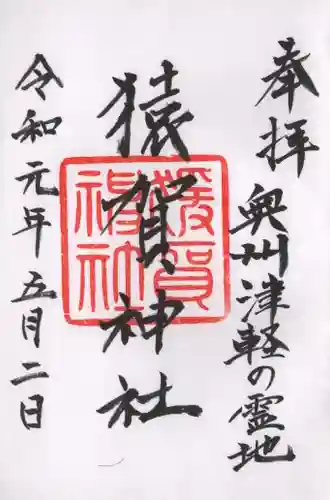 奉拝 奥州津軽の霊地
猿賀神社
猿賀神社
令和元年五月二日